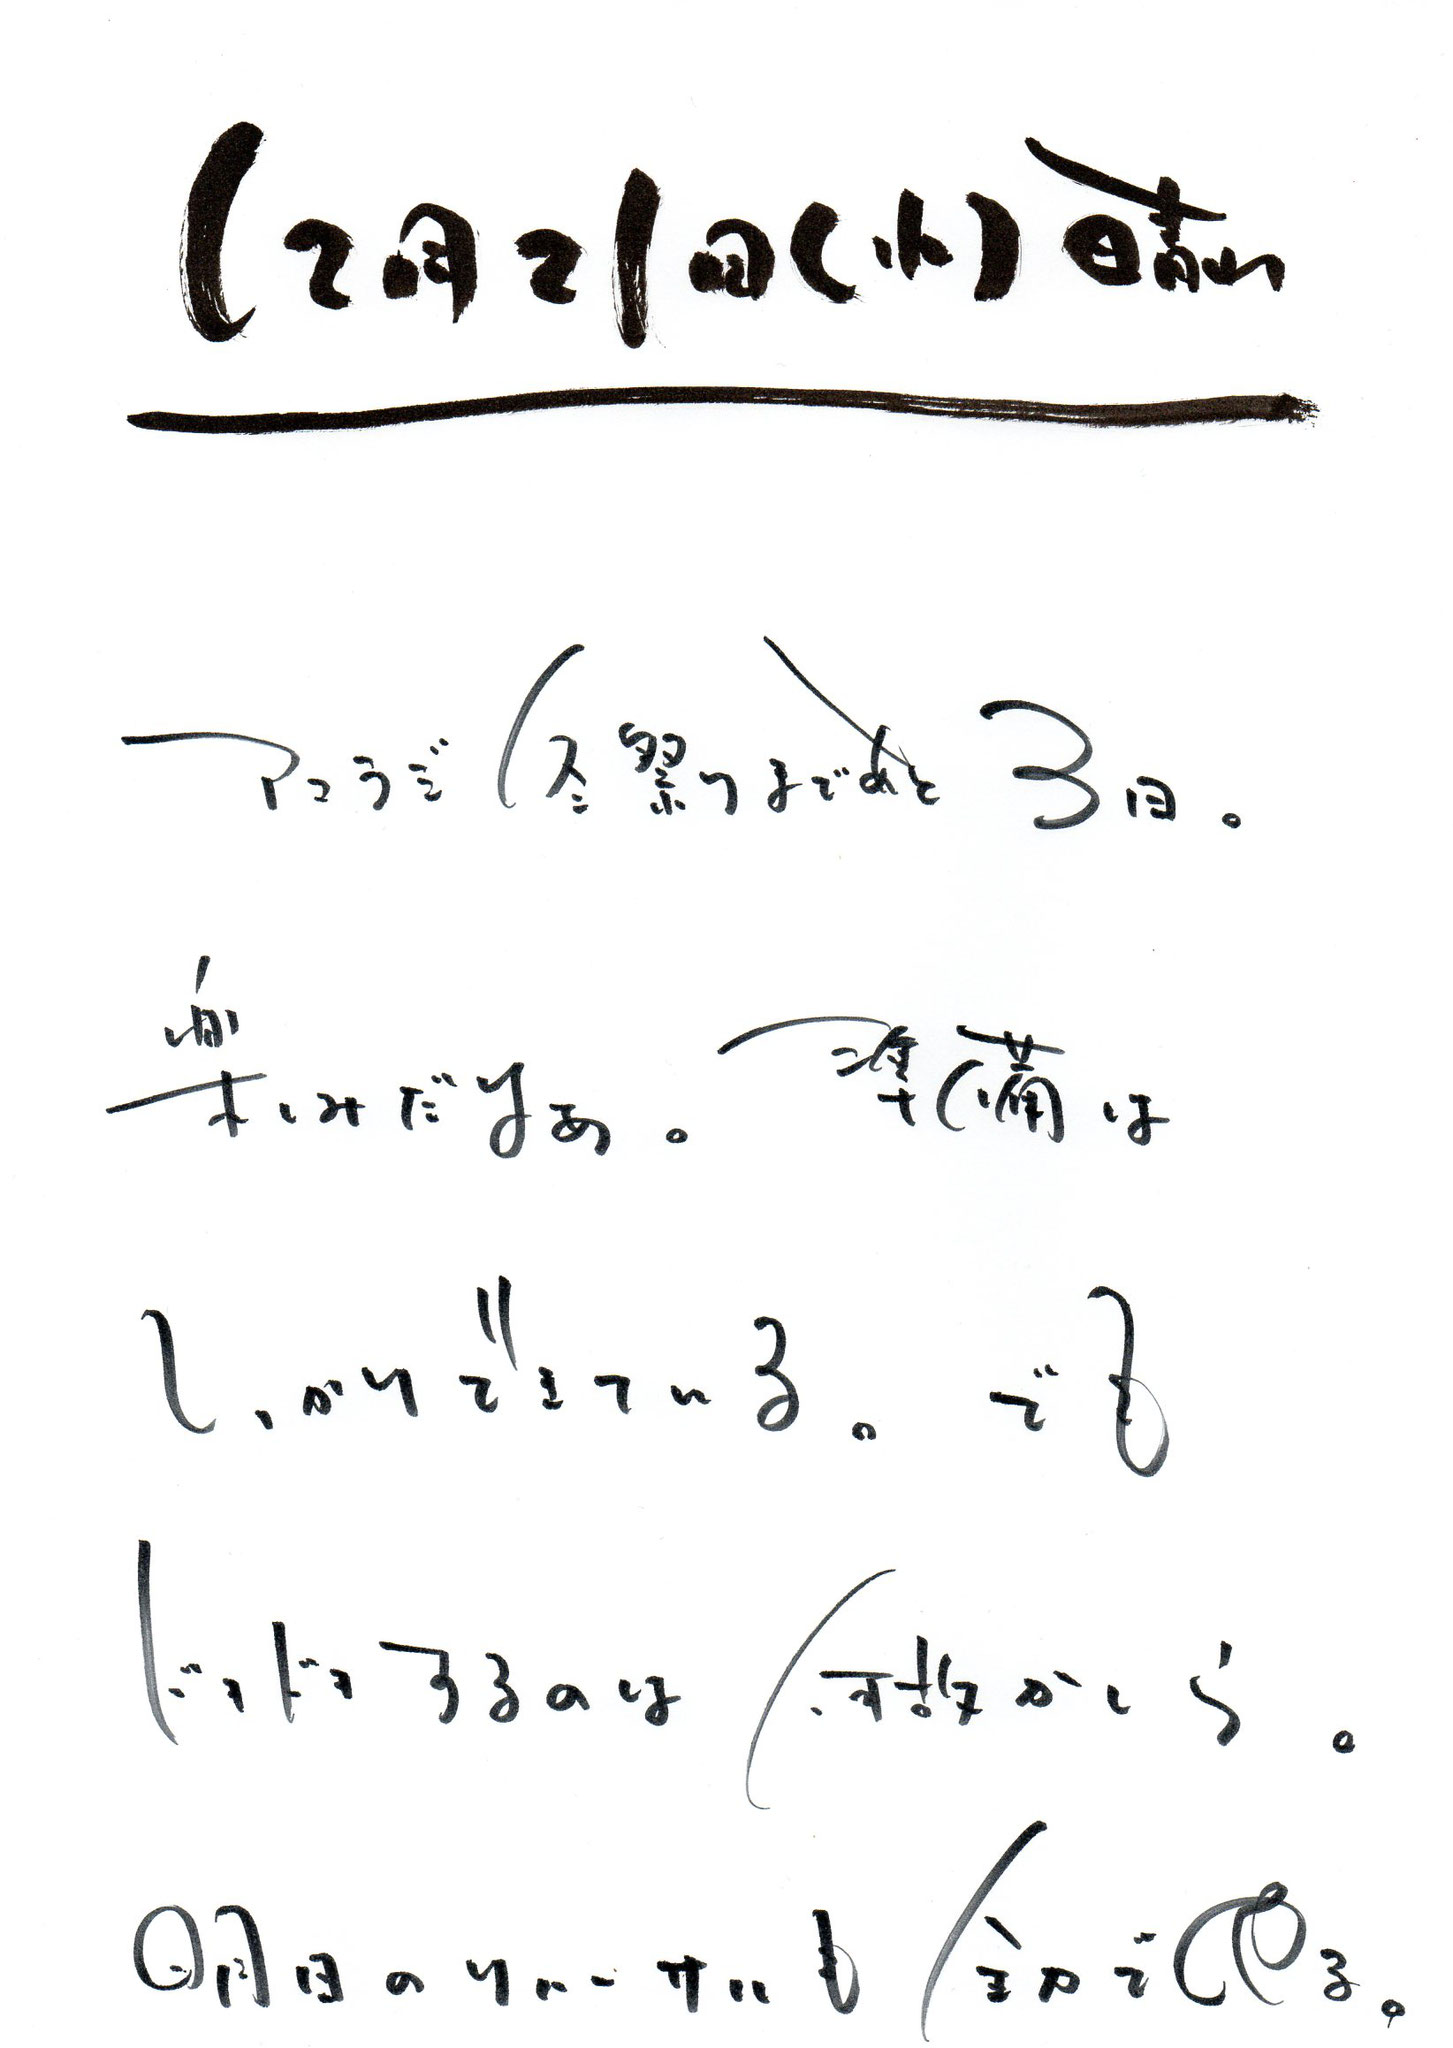 12月21日(水)晴れ
アコラジ冬祭りまであと3日。
楽しみだなあ。準備は
しっかりできている。でも
ドキドキするのは何故かしら。
明日のリハーサルも全力でやる。